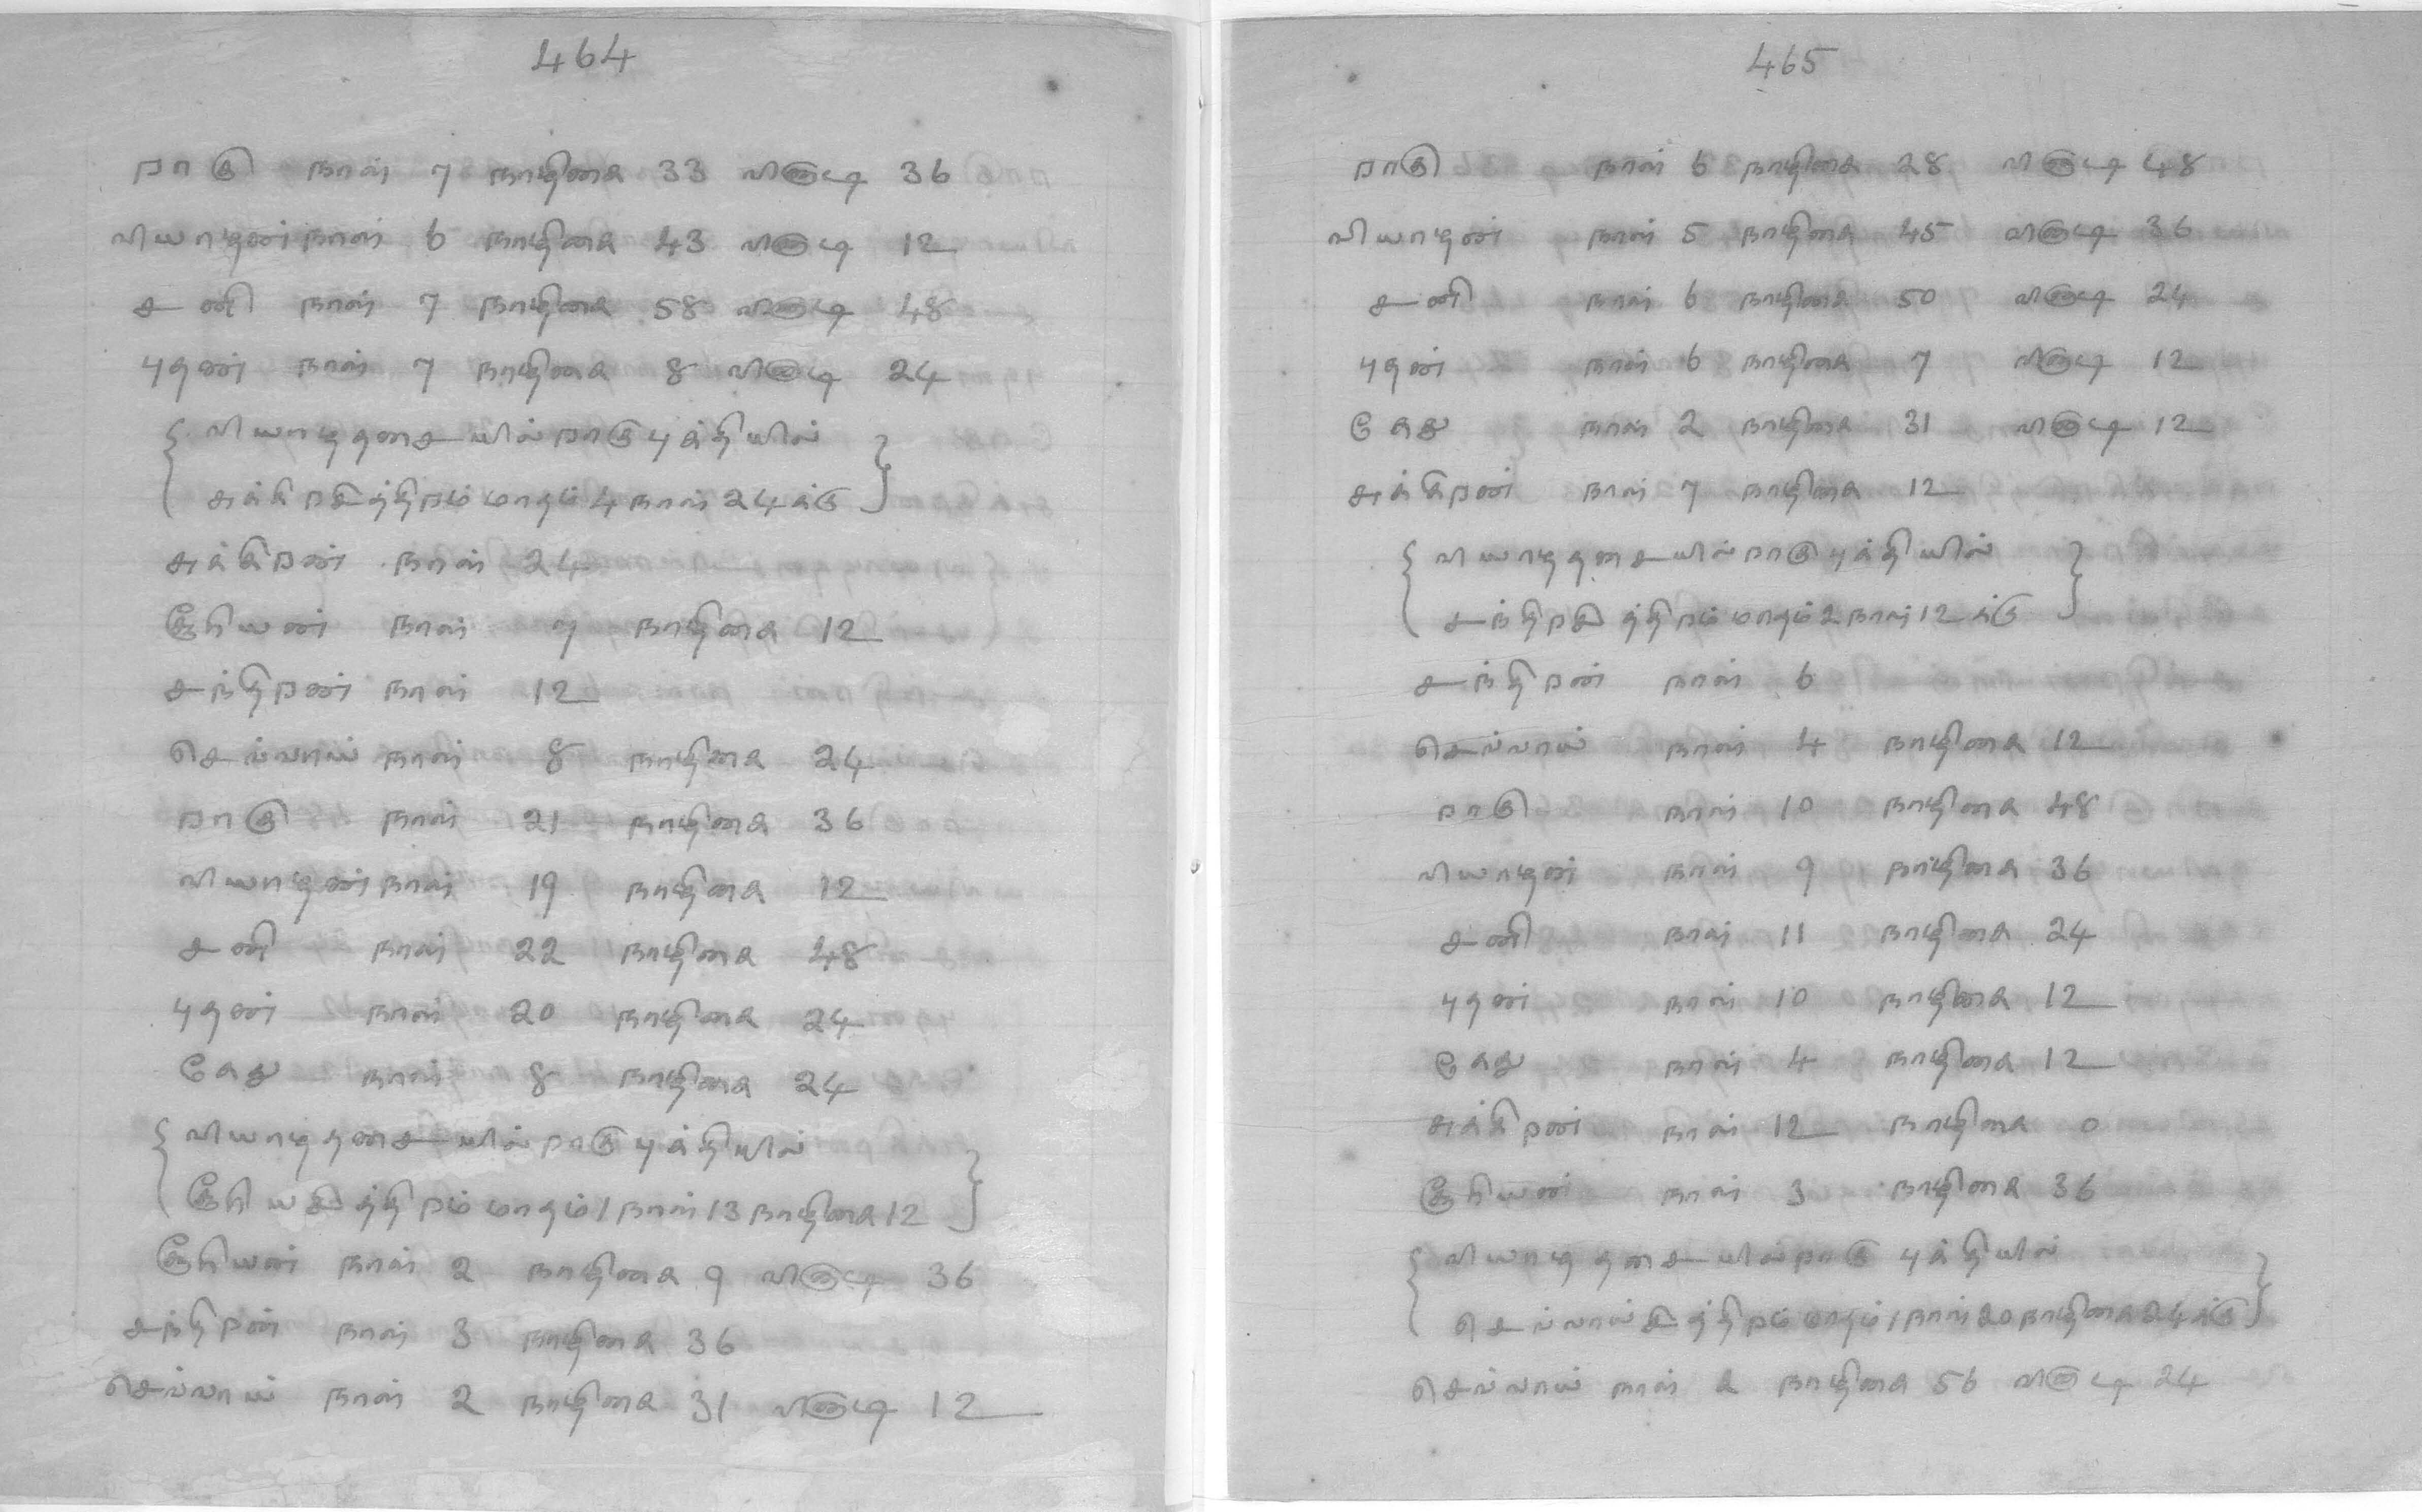 464
ராகு நாள் 7 நாழிகை 33 வினாடி 36
வியாழன் நாள் 6 நாழிகை 43 வினாடி 12
சனி நாள் 7 நாழிகை 58 வினாடி 48
புதன் நாள் 7 நாழிகை 8 வினாடி 24
{ வியாழதசையில் ராகு புக்தியில் }
{ சுக்கிரசித்திரம் மாதம் 4 நாள் 24 க்கு }
சுக்கிரன் நாள் 24
சூரியன் நாள் 7 நாழிகை 12
சந்திரன் நாள் 12
செவ்வாய் நாள் 8 நாழிகை 24
ராகு நாள் 21 நாழிகை 36
வியாழன் நாள் 19 நாழிகை 12
சனி நாள் 22 நாழிகை 48
புதன் நாள் 20 நாழிகை 24
கேது நாள் 8 நாழிகை 24
{ வியாழதசையில் ராகு புக்தியில் }
{ சூரியசித்திரம் மாதம் 1 நாள் 13 நாழிகை 12 }
சூரியன் நாள் 2 நாழிகை 9 வினாடி 36
சந்திரன் நாள் 3 நாழிகை 36
செவ்வாய் நாள் 2 நாழிகை 31 வினாடி 12
465
ராகு நாள் 6 நாழிகை 28 வினாடி 48
வியாழன் நாள் 5 நாழிகை 45 வினாடி 36
சனி நாள் 6 நாழிகை 50 வினாடி 24
புதன் நாள் 6 நாழிகை 7 வினாடி 12
கேது நாள் 2 நாழிகை 31 வினாடி 12
சுக்கிரன் நாள் 7 நாழிகை 12
{ வியாழதசையில் ராகு புக்தியில் }
{ சந்திரசித்திரம் மாதம் 2 நாள் 12 க்கு }
சந்திரன் நாள் 6
செவ்வாய் நாள் 4 நாழிகை 12
ராகு நாள் 10 நாழிகை 48
வியாழன் நாள் 9 நாழிகை 36
சனி நாள் 11 நாழிகை 24
புதன் நாள் 10 நாழிகை 12
கேது நாள் 4 நாழிகை 12
சுக்கிரன் நாள் 12 நாழிகை 0
சூரியன் நாள் 3 நாழிகை 36
{ வியாழ தசையில் ராகு புக்தியில் }
{ செவ்வாய்சித்திரம் மாதம் 1 நாள் 20 நாழிகை 24 க்கு }
செவ்வாய் நாள் 2 நாழிகை 56 வினாடி 24